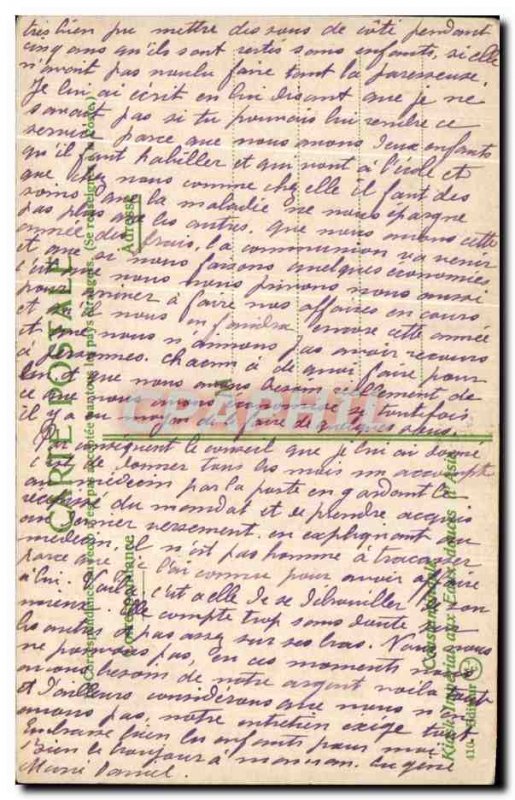 très bien pu mettre des sous de côté pendant
cinq ans qu'ils sont restés sans enfants, si elle
n'avait pas voulu faire tant la paresseuse.
Je lui ai écrit en lui disant que je ne
savait pas si tu pourrais lui rendre ce
service parce que nous avons deux enfants
qu'il faut habiller et qui vont à l'école et
que chez nous comme chez elle il faut des
soins que la maladie ne nous épargne
pas plus que les autres. que nous avons cette
année des frais, la communion va venir
et que si nous faisons quelques économies
c'est que nous nous privons nous aussi
pour arriver à faire nos affaires en cours
et s'il nous en faudra encore cette année
et que nous n'aimons pas avoir recours
à personnes. chacun à de quoi faire pour
lui et que nous avons besoin tellement de
ce que nous avons économisé si toutefois
il y a eu moyen de le faire de quelques sous.
Par conséquent le conseil que je lui ai donné
c'est de donner tous les mois un accompte
au médecin par la poste en gardant le
récépissé du mandat et de prendre acquis
au dernier versement. en expliquant au
médecin, il n'est pas homme à tracasser
parce que je l'ai connu pour avoir affaire
à lui. Voilà c'est à elle de se débrouiller
Elle compte trop sans doute sur
les autres et pas assez sur ses bras. Nous nous
ne pouvons pas, en ces moments nous
avons besoin de notre argent voilà tout
et d'ailleurs considérons que nous n'
avons pas, notre entretien exige tout
Embrasse bien les enfants pour moi
Bien le bonjour à maman. Eugène
Marie Daniel.
CARTE POSTALE
Correspondance
Adresse
CPAPHIL
Kiathané Impérial aux Eaux-douces d'Asie
Constantinople
410